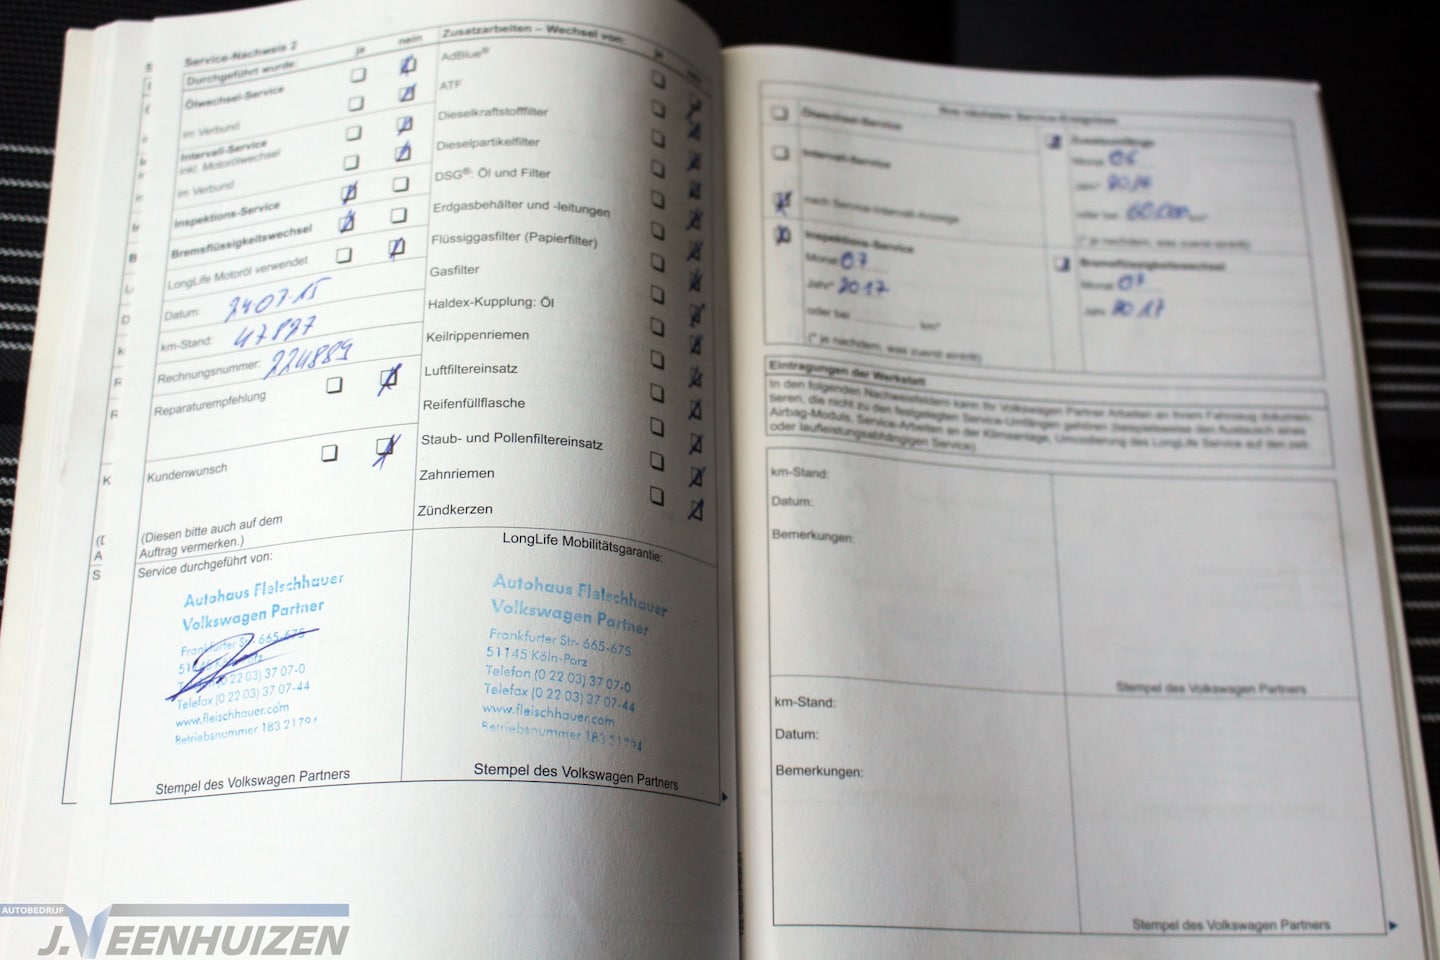 Service-Nachweis 2
ja nein
Durchgeführt wurde:
Ölwechsel-Service
im Verbund
Intervall-Service
inkl. Motorölwechsel
im Verbund
Inspektions-Service
Bremsflüssigkeitswechsel
LongLife Motoröl verwendet
Datum: 24.07.15
km-Stand: 47827
Rechnungsnummer: 224889
Reparaturempfehlung
Kundenwunsch
(Diesen bitte auch auf dem
Auftrag vermerken.)
Service durchgeführt von:
Autohaus Fleischhauer
Volkswagen Partner
Frankfurter Str. 665-675
51145 Köln-Porz
Telefon (0 22 03) 37 07-0
Telefax (0 22 03) 37 07-44
www.fleischhauer.com
Betriebsnummer 183 21794
Stempel des Volkswagen Partners
Zusatzarbeiten – Wechsel von:
ja
AdBlue®
ATF
Dieselkraftstofffilter
Dieselpartikelfilter
DSG®: Öl und Filter
Erdgasbehälter und -leitungen
Flüssiggasfilter (Papierfilter)
Gasfilter
Haldex-Kupplung: Öl
Keilrippenriemen
Luftfiltereinsatz
Reifenfüllflasche
Staub- und Pollenfiltereinsatz
Zahnriemen
Zündkerzen
LongLife Mobilitätsgarantie:
Autohaus Fleischhauer
Volkswagen Partner
Frankfurter Str- 665-675
51145 Köln-Porz
Telefon (0 22 03) 37 07-0
Telefax (0 22 03) 37 07-44
www.fleischhauer.com
Betriebsnummer 183 21794
Stempel des Volkswagen Partners
Ihre nächsten Service-Ereignisse
Ölwechsel-Service
Intervall-Service
nach Service-Intervall-Anzeige
Inspektions-Service
Monat 07
Jahr* 2017
oder bei km*
(* je nachdem, was zuerst eintritt)
Monat 06
Jahr*
oder bei 60.000 km*
(* je nachdem, was zuerst eintritt)
Bremsflüssigkeitswechsel
Monat 07
Jahr 2017
Eintragungen der Werkstatt
In den folgenden Nachweisfeldern kann Ihr Volkswagen Partner Arbeiten an Ihrem Fahrzeug dokumen-
tieren, die nicht zu den festgelegten Service-Umfängen gehören (beispielsweise den Austausch eines
Airbag-Moduls, Service-Arbeiten an der Klimaanlage, Umcodierung des LongLife Service auf den zeit-
oder laufleistungsabhängigen Service)
km-Stand:
Datum:
Bemerkungen:
Stempel des Volkswagen Partners
km-Stand:
Datum:
Bemerkungen:
Stempel des Volkswagen Partners
AUTOBEDRIJF
J.VEENHUIZEN